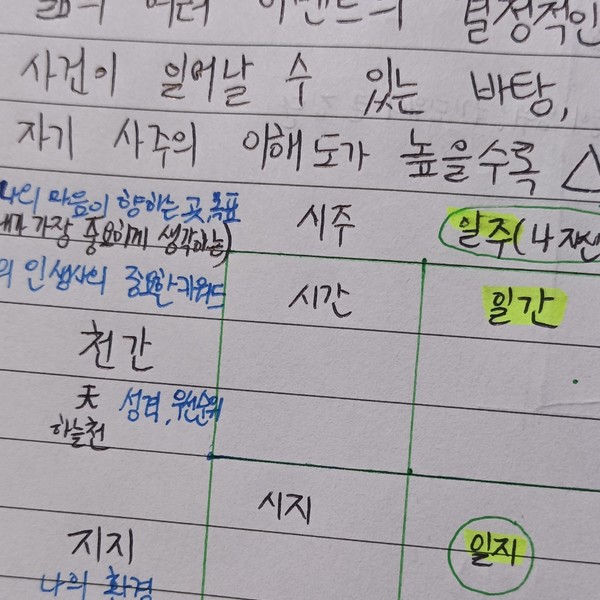 삶의 여러 이벤트의 결정적인
사건이 일어날 수 있는 바탕,
자기 사주의 이해도가 높을수록 △
나의 마음이 향하는 곳, 목표
내가 가장 중요하게 생각하는)
시주 일주(나 자신
의 인생사의 중요한 키워드
시간 일간
천간
天 성격, 우선순위
하늘천
시지 일지
지지
나의 환경